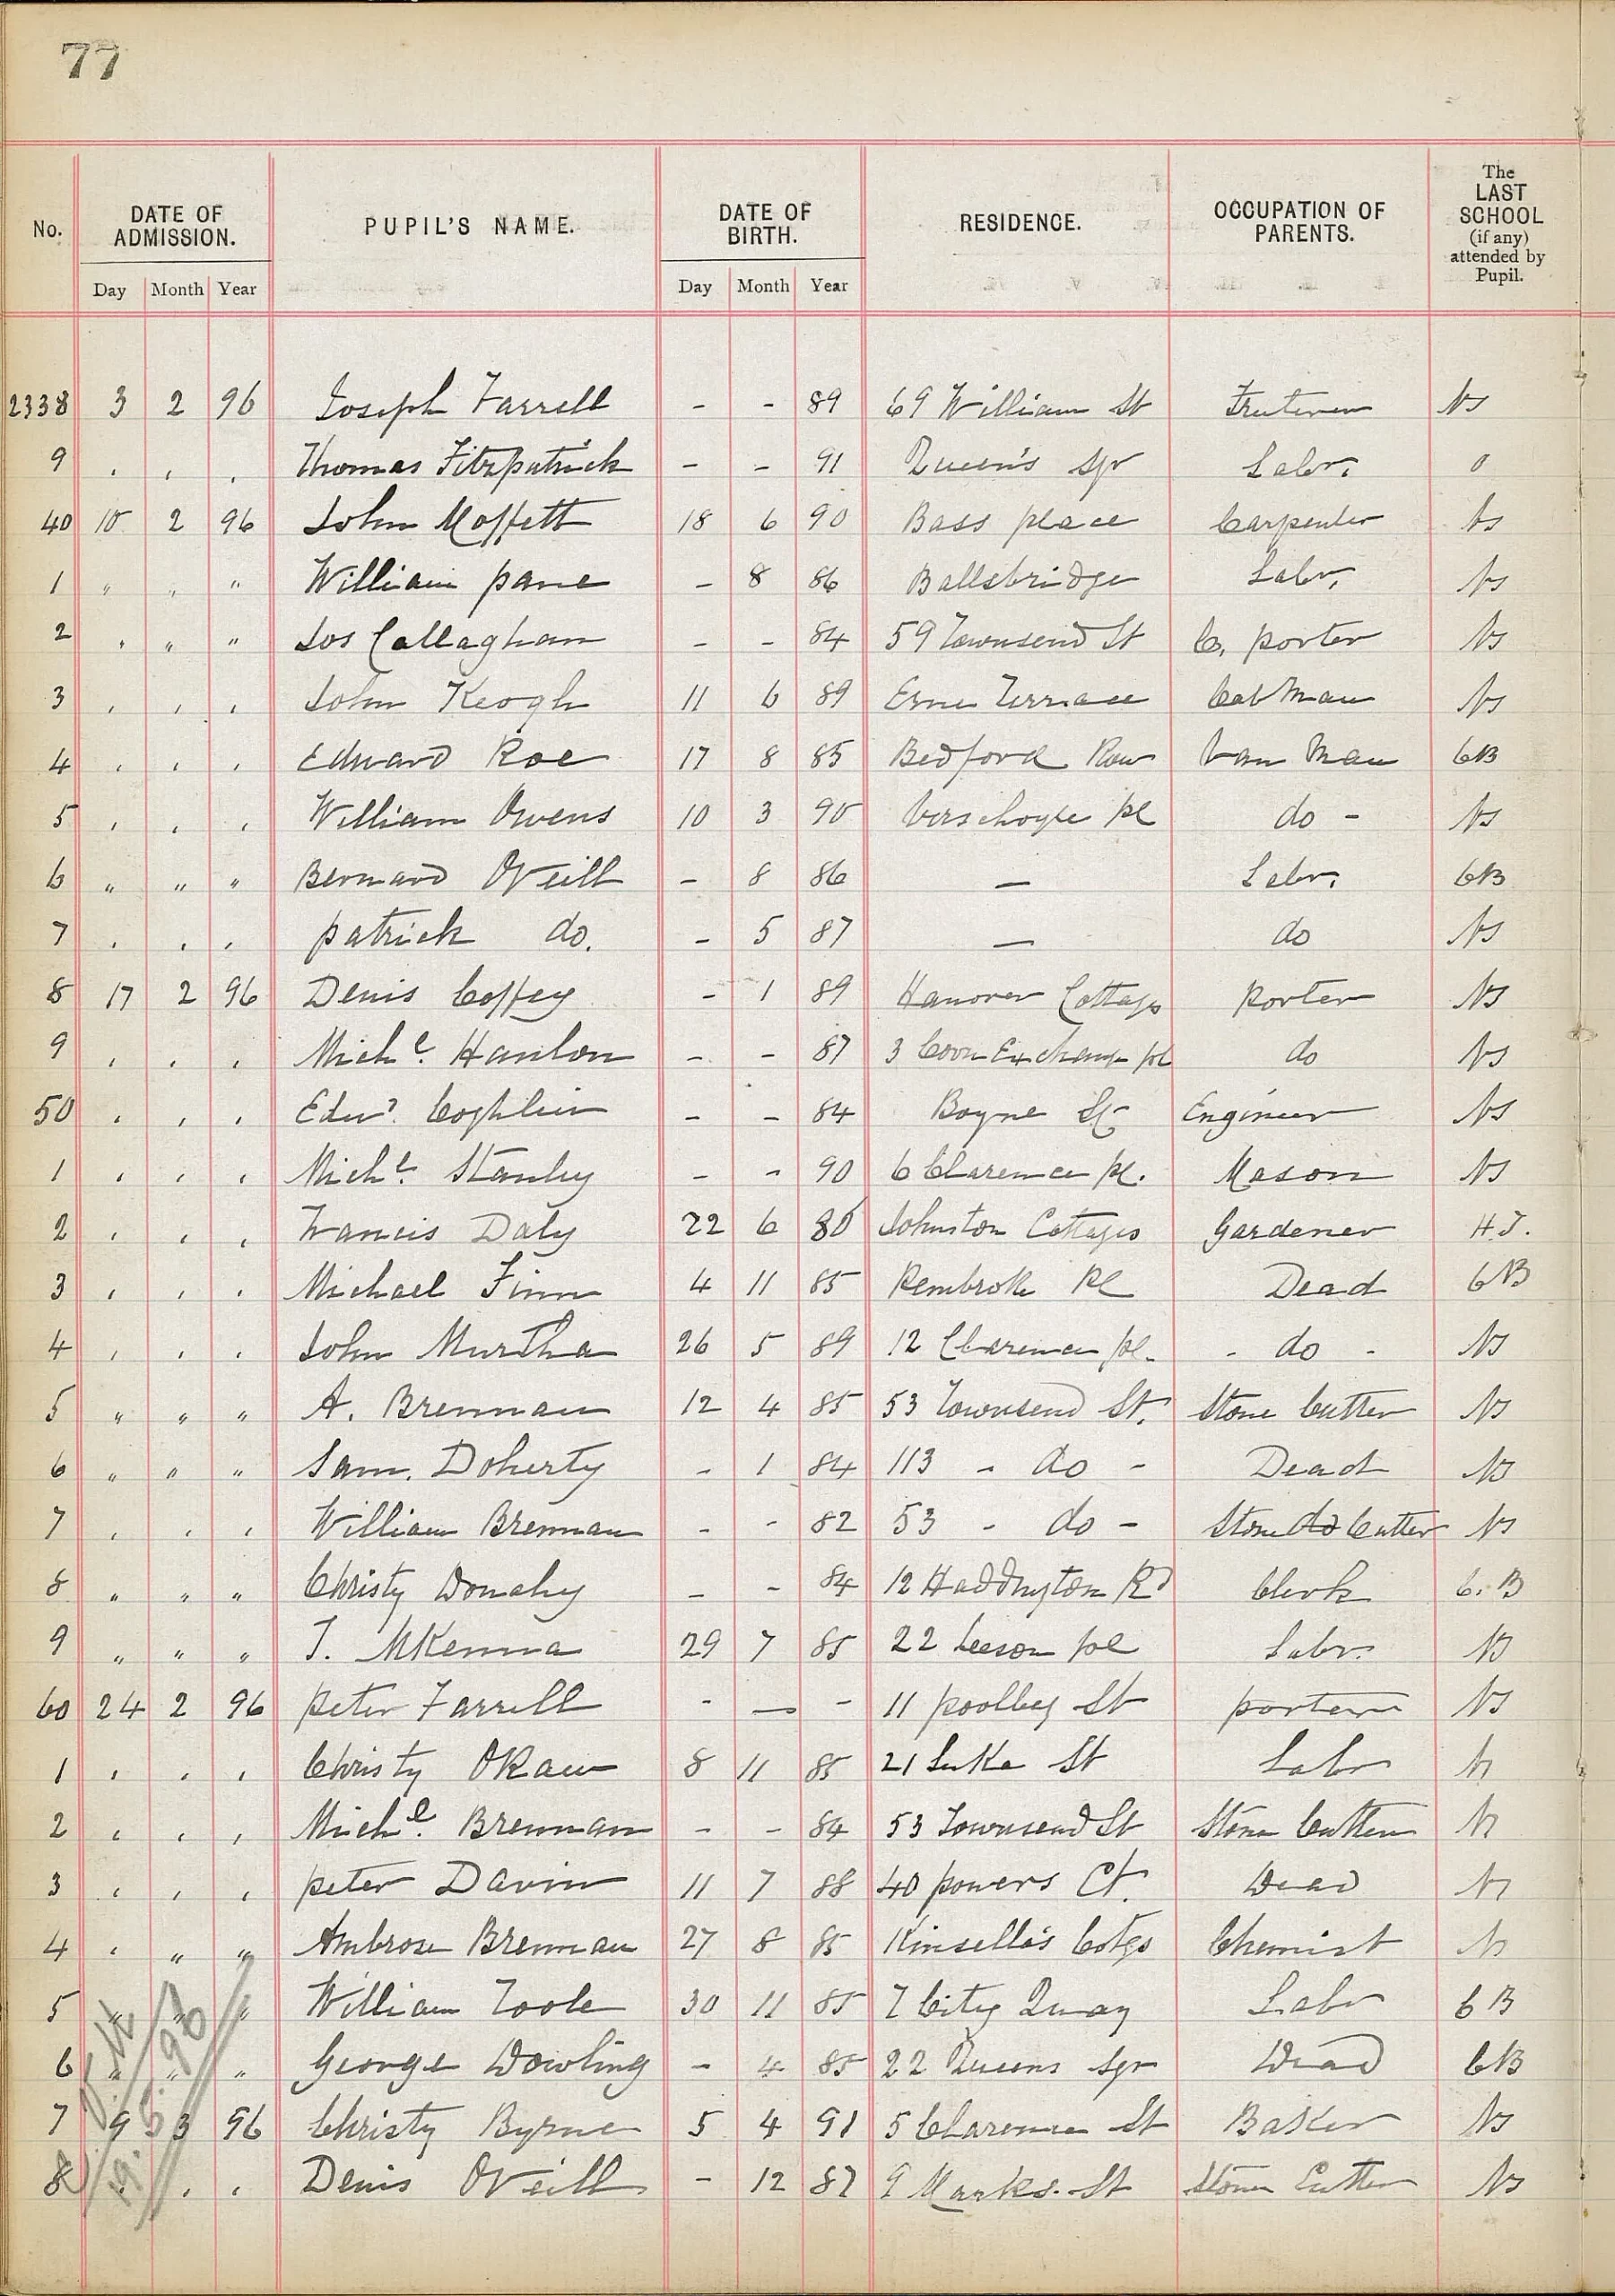 77
No. DATE OF ADMISSION. PUPIL'S NAME. DATE OF BIRTH. RESIDENCE. OCCUPATION OF PARENTS. The LAST SCHOOL (if any) attended by Pupil.
Day Month Year Day Month Year
2338 3 2 96 Joseph Farrell - - 89 69 William St Ns
9 . , . Thomas Fitzpatrick - - 91 Queen's Sqr Labr. o
40 10 2 96 John Moffett 18 6 90 Bass place Carpenter Ns
1 " " " William pane - 8 86 Ballsbridge Labr. Ns
2 " " " Jos Callaghan - - 84 59 Townsend St C. porter Ns
3 , , , John Keogh 11 6 89 Erne Terrace Cab Man Ns
4 , , , Edward Roe 17 8 85 Bedford Row Van Man CB
5 , , , William Owens 10 3 90 Verschoyle pl do - Ns
6 " " " Bernard ONeill - 8 86 — Labr. CB
7 . . , patrick do. - 5 87 — do Ns
8 17 2 96 Denis Coffey - 1 89 Hanover Cottages porter Ns
9 , , , Michl. Hanlon - - 87 3 Corn Exchange pl do Ns
50 , , , Edwd. Coghlin - - 84 Boyne St Engineer Ns
1 , , , Michl. Stanley - - 90 6 Clarence pl. Mason Ns
2 , , , Francis Daly 22 6 86 Johnston Cottages Gardener H.F.
3 , , , Michael Finn 4 11 85 Pembroke Pl Dead CB
4 , , , John Murtha 26 5 89 12 Clarence pl. - do - Ns
5 " " " A. Brennan 12 4 85 53 Townsend St. Stone Cutter Ns
6 " " " Sam. Doherty - 1 84 113 - do - Dead Ns
7 , , , William Brennan - - 82 53 - do - Stone do Cutter Ns
8 " " " Christy Donahy - - 84 12 Haddington Rd Clerk C.B
9 " " " J. McKenna 29 7 85 22 Leeson pl Labr. Ns
60 24 2 96 Peter Farrell - — - 11 poolbeg St porter Ns
1 , , , Christy OKane 8 11 85 21 Luke St Labr Ns
2 , , , Michl. Brennan - - 84 53 Townsend St Stone Cutter Ns
3 , , , peter Davin 11 7 88 40 powers Ct. Dead Ns
4 , " " Ambrose Brennan 27 8 85 Kinsella's Cotgs Chemist Ns
5 " " " William Toole 30 11 85 7 City Quay Labr CB
6 " " " George Dowling - 4 85 22 Queens Sqr Dead CB
7 9 3 96 Christy Byrne 5 4 91 5 Clarence St Baker Ns
8 , , , Denis ONeill - 12 87 9 Marks St Stone Cutter Ns